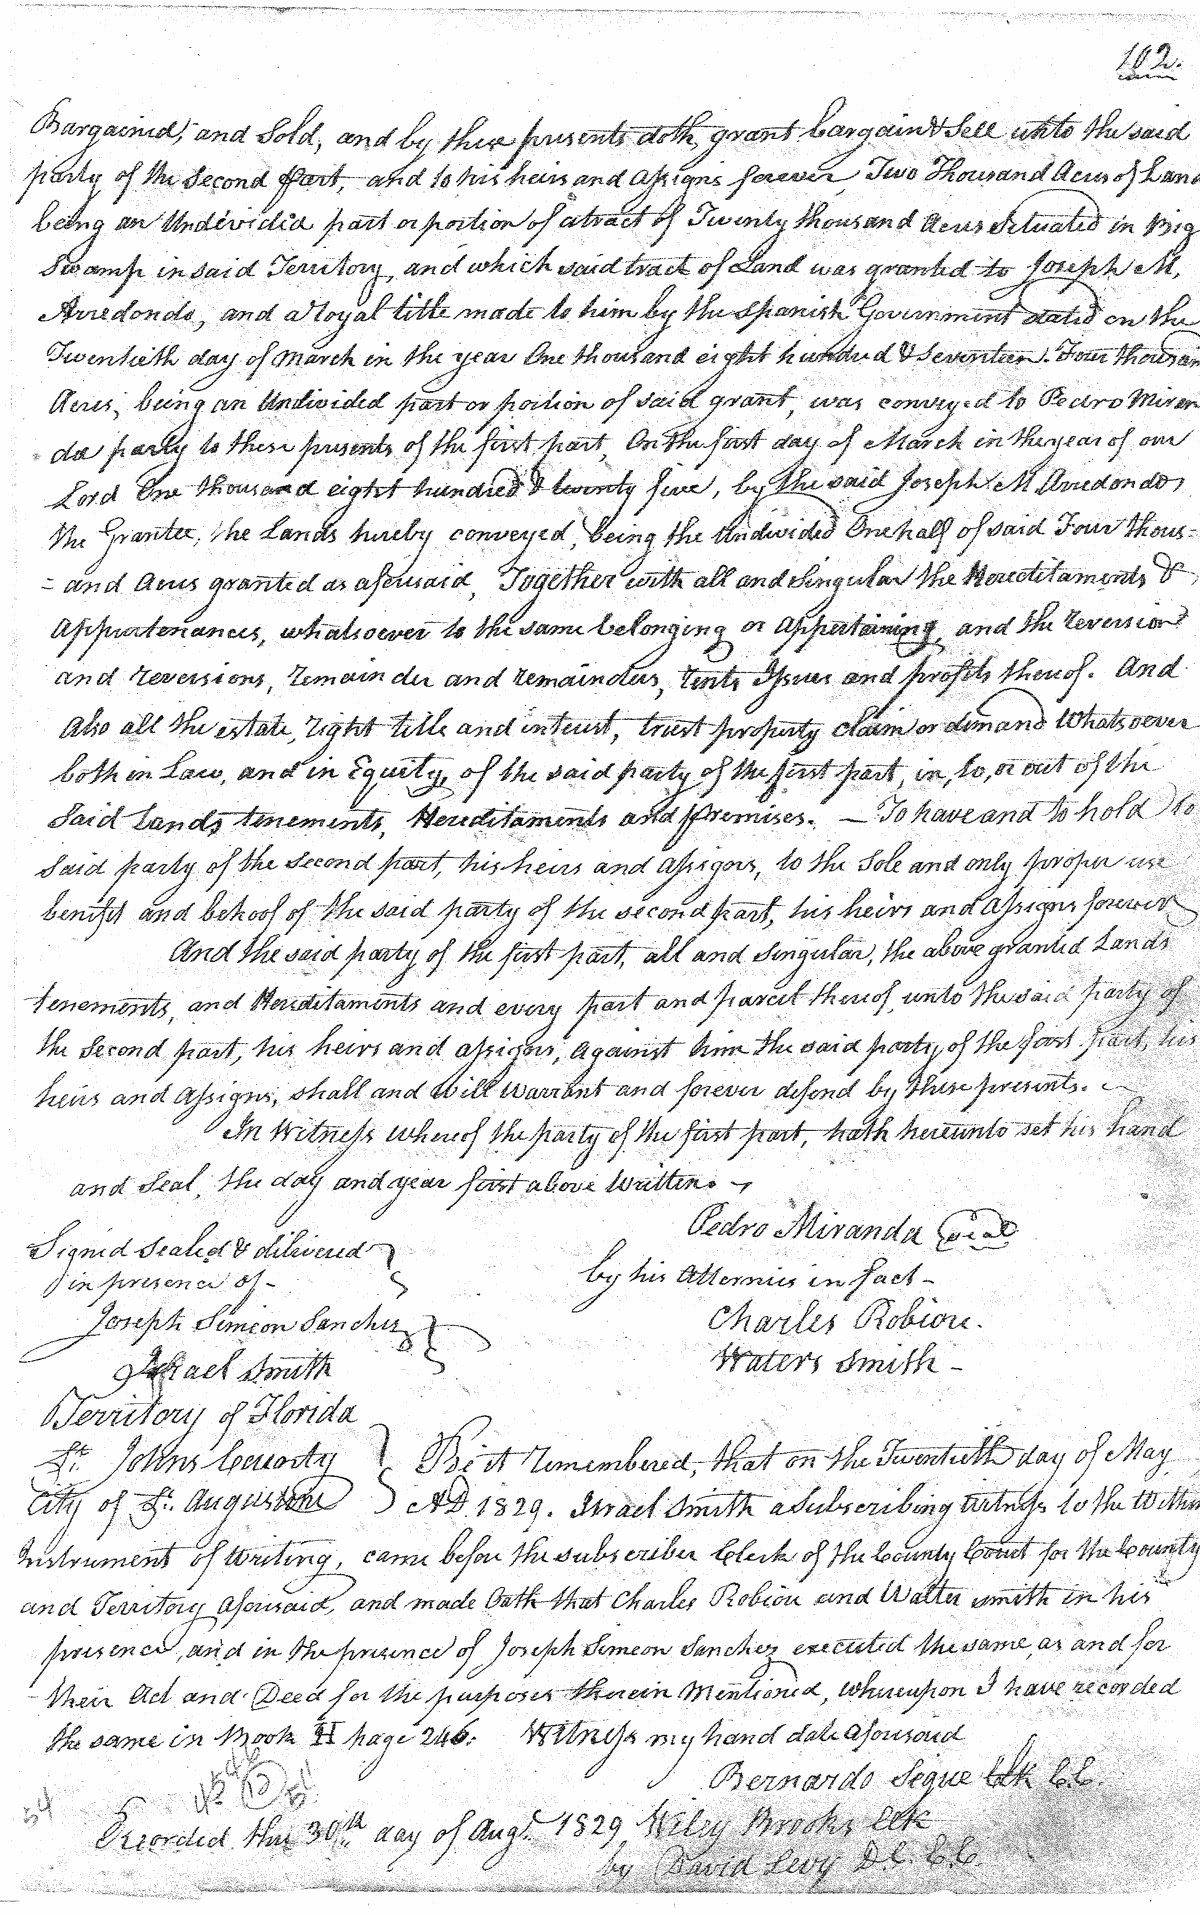 102.
Bargained, and Sold, and by these presents doth, grant bargain & Sell unto the said
party of the Second part, and to his heirs and assigns forever, Two Thousand Acres of Land
being an Undivided part or portion of a tract of Twenty thousand Acres Situated in Big
Swamp in said Territory, and which said tract of Land was granted to Joseph M,
Arredondo, and a Royal title made to him by the Spanish Government dated on the
Twentieth day of March in the year One thousand eight hundred & Seventeen. Four thousan
Acres, being an Undivided part or portion of said grant, was conveyed to Pedro Miran
da party to these presents of the first part, On the first day of March in the year of our
Lord One thousand eight hundred & twenty five, by the said Joseph M Arredondo,
the Grantee, the Lands hereby conveyed, being the Undivided One half of said Four thous=
=and Acres granted as aforesaid, Together with all and Singular the Hereditaments &
Appurtenances, whatsoever to the same belonging or appertaining, and the reversion
and reversions, remainder and remainders, rents Issues and profits thereof. And
Also all the estate, right title and interest, trust property claim or demand Whatsoever
both in Law, and in Equity, of the said party of the first part, in, to, or out of the
Said Lands tenements, Hereditaments and premises. — To have and to hold to
Said party of the Second part, his heirs and Assigns, to the Sole and only proper use
benifit and behoof of the said party of the second part, his heirs and Assigns forever
And the said party of the first part, all and Singular, the above granted Lands
tenements, and Hereditaments and every part and parcel thereof, unto the said party of
the Second part, his heirs and assigns, against him the said party, of the first part, his
heirs and Assigns, shall and will warrant and forever defend by these presents.
In Witness whereof the party of the first part, hath hereunto set his hand
and Seal, the day and year first above Written.
Pedro Miranda Seal
Signed Sealed & delivered
in presence of -
by his Attornies in fact -
Joseph Simeon Sanchez
Charles Robiou.
Israel Smith
Waters Smith -
Territory of Florida
St. Johns County
City of St. Augustine
Be it remembered, that on the Twentieth day of May
AD 1829. Israel Smith a Subscribing Witness to the Within
Instrument of Writing, came before the subscriber Clerk of the County Court for the County
and Territory aforesaid, and made Oath that Charles Robiou and Walter Smith in his
presence, and in the presence of Joseph Simeon Sanchez executed the same, as and for
their Act and Deed for the purposes therein Mentioned, whereupon I have recorded
the same in Book H page 246. Witness my hand date aforesaid
Bernardo Segue Clk C.C.
54
Recorded this 30th day of Augt. 1829 Wiley Brooks Clk
by David Levy D.C.C.C.